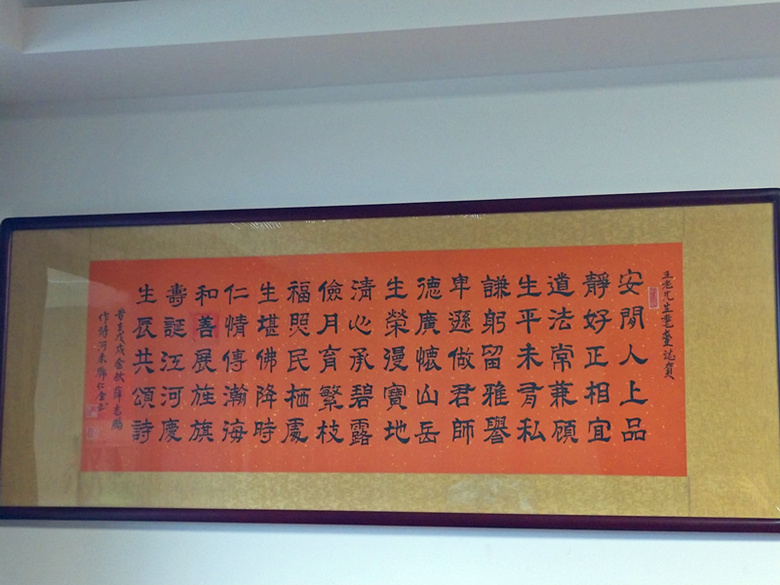 王老先生耄耋誌賀
安閒人上品
靜好正相宜
道法常兼顧
生平未有私
謙躬留雅譽
卑遜做君師
德廣懷山岳
生榮漫寶地
清心承碧露
儉月育繁枝
福照民栖處
生堪佛降時
仁情傳瀚海
和善展旌旗
壽誕江河慶
生辰共頌詩
戊戌金秋薛志鵬
作詩河東